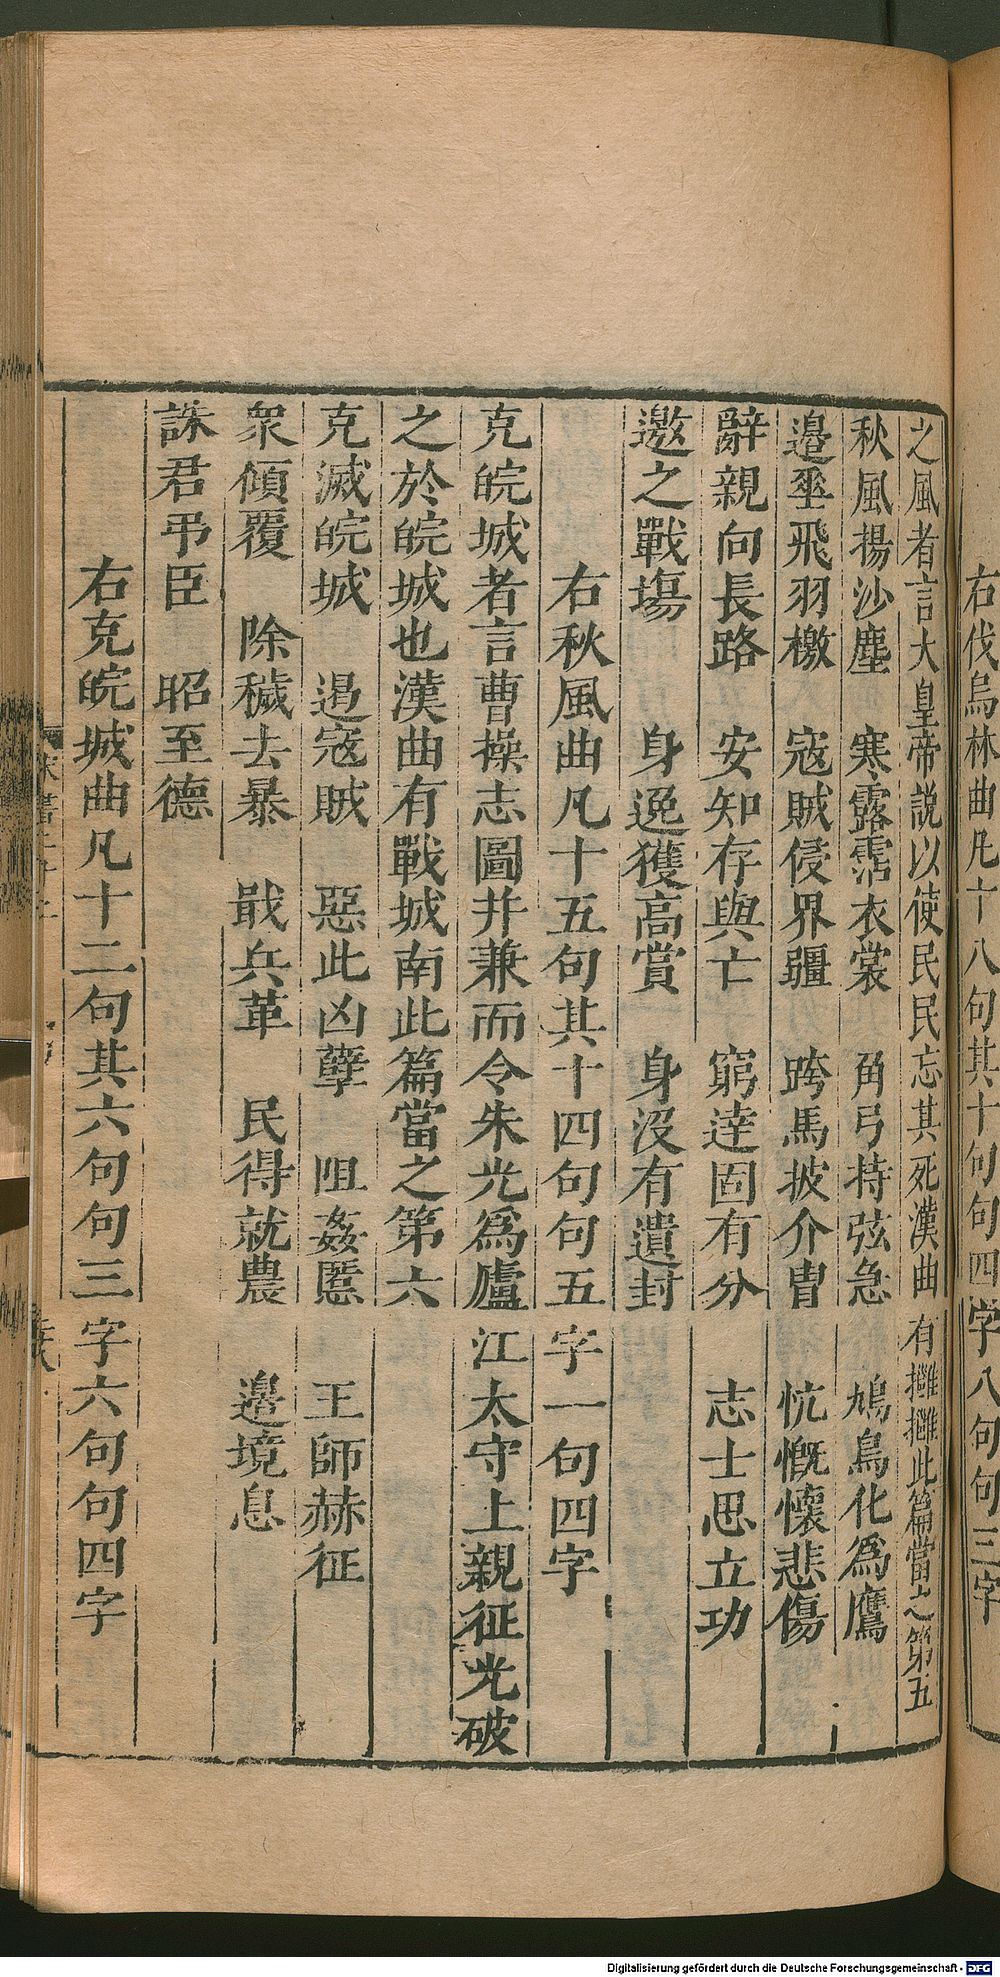 右伐烏林曲凡十八句其十句句四字八句句三字
之風者言大皇帝説以使民民忘其死漢曲有擁離此篇當之第五
秋風揚沙塵　寒露霑衣裳　角弓持弦急　鳩鳥化爲鷹
邉垂飛羽檄　寇賊侵界疆　跨馬披介胄　忼慨懷悲傷
辭親向長路　安知存與亡　窮逹固有分　志士思立功
邀之戰塲　身逸獲高賞　身沒有遺封
右秋風曲凡十五句其十四句句五字一句四字
克皖城者言曹操志圖并兼而令朱光爲廬江太守上親征光破
之於皖城也漢曲有戰城南此篇當之第六
克滅皖城　遏寇賊　惡此凶孽　阻姦慝　王師赫征
衆傾覆　除穢去暴　戢兵革　民得就農　邉境息
誅君弔臣　昭至德
右克皖城曲凡十二句其六句句三字六句句四字
Digitalisierung gefördert durch die Deutsche Forschungsgemeinschaft - DFG